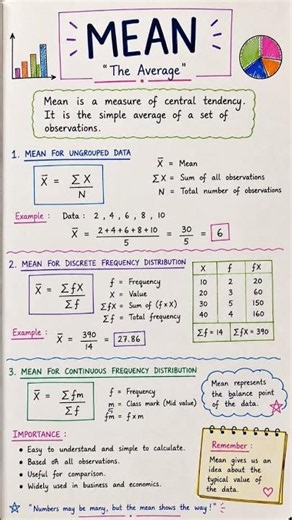 MEAN
"The Average"
Mean is a measure of central tendency.
It is the simple average of a set of
observations.
1. MEAN FOR UNGROUPED DATA
X̄ = ΣX / N
X̄ = Mean
ΣX = Sum of all observations
N = Total number of observations
Example : Data : 2 , 4 , 6 , 8 , 10
X̄ = 2+4+6+8+10 / 5 = 30 / 5 = 6
2. MEAN FOR DISCRETE FREQUENCY DISTRIBUTION
X̄ = ΣfX / Σf
f = Frequency
X = Value
ΣfX = Sum of (f×X)
Σf = Total frequency
X f fX
10 2 20
20 3 60
30 5 150
40 4 160
Σf = 14 ΣfX = 390
Example : X̄ = 390 / 14 = 27.86
3. MEAN FOR CONTINUOUS FREQUENCY DISTRIBUTION
X̄ = Σfm / Σf
f = Frequency
m = Class mark (Mid value)
fm = f × m
Mean represents
the balance point
of the data.
IMPORTANCE :
• Easy to understand and simple to calculate.
• Based on all observations.
• Useful for comparison.
• Widely used in business and economics.
Remember :
Mean gives us an
idea about the
typical value of
the data.
"Numbers may be many, but the mean shows the way!"